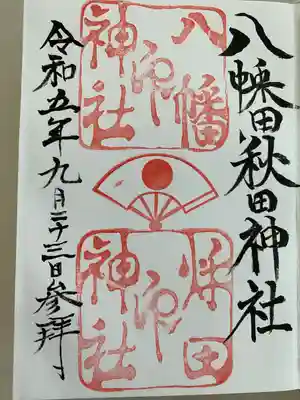 八幡秋田神社
八幡
印
神社
秋田
印
神社
令和五年九月二十三日参拝